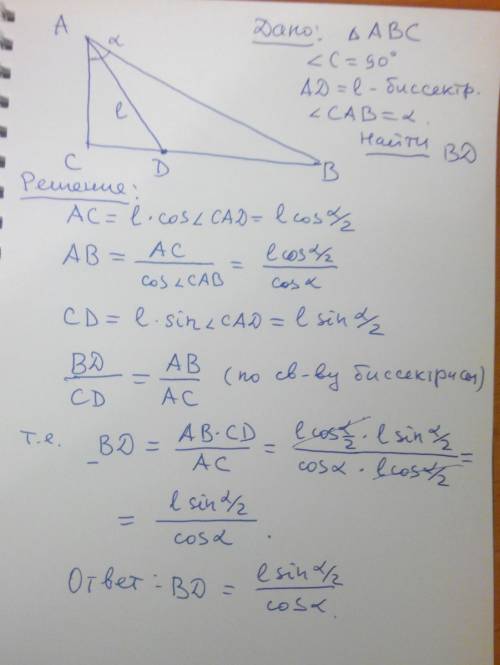 Дано: △ ABC
A
α
∠C = 90°
AD = l - биссектр.
l
∠CAB = α.
Найти BD
C
D
B
Решение:
AC = l · cos∠CAD = l cos α/2
AB = AC / cos∠CAB = l cos α/2 / cos α
CD = l · sin∠CAD = l sin α/2
BD / CD = AB / AC (по св-ву биссектрисы)
т.е. BD = AB · CD / AC = l cos α/2 · l sin α/2 / cos α · l cos α/2 =
= l sin α/2 / cos α .
Ответ: BD = l sin α/2 / cos α.